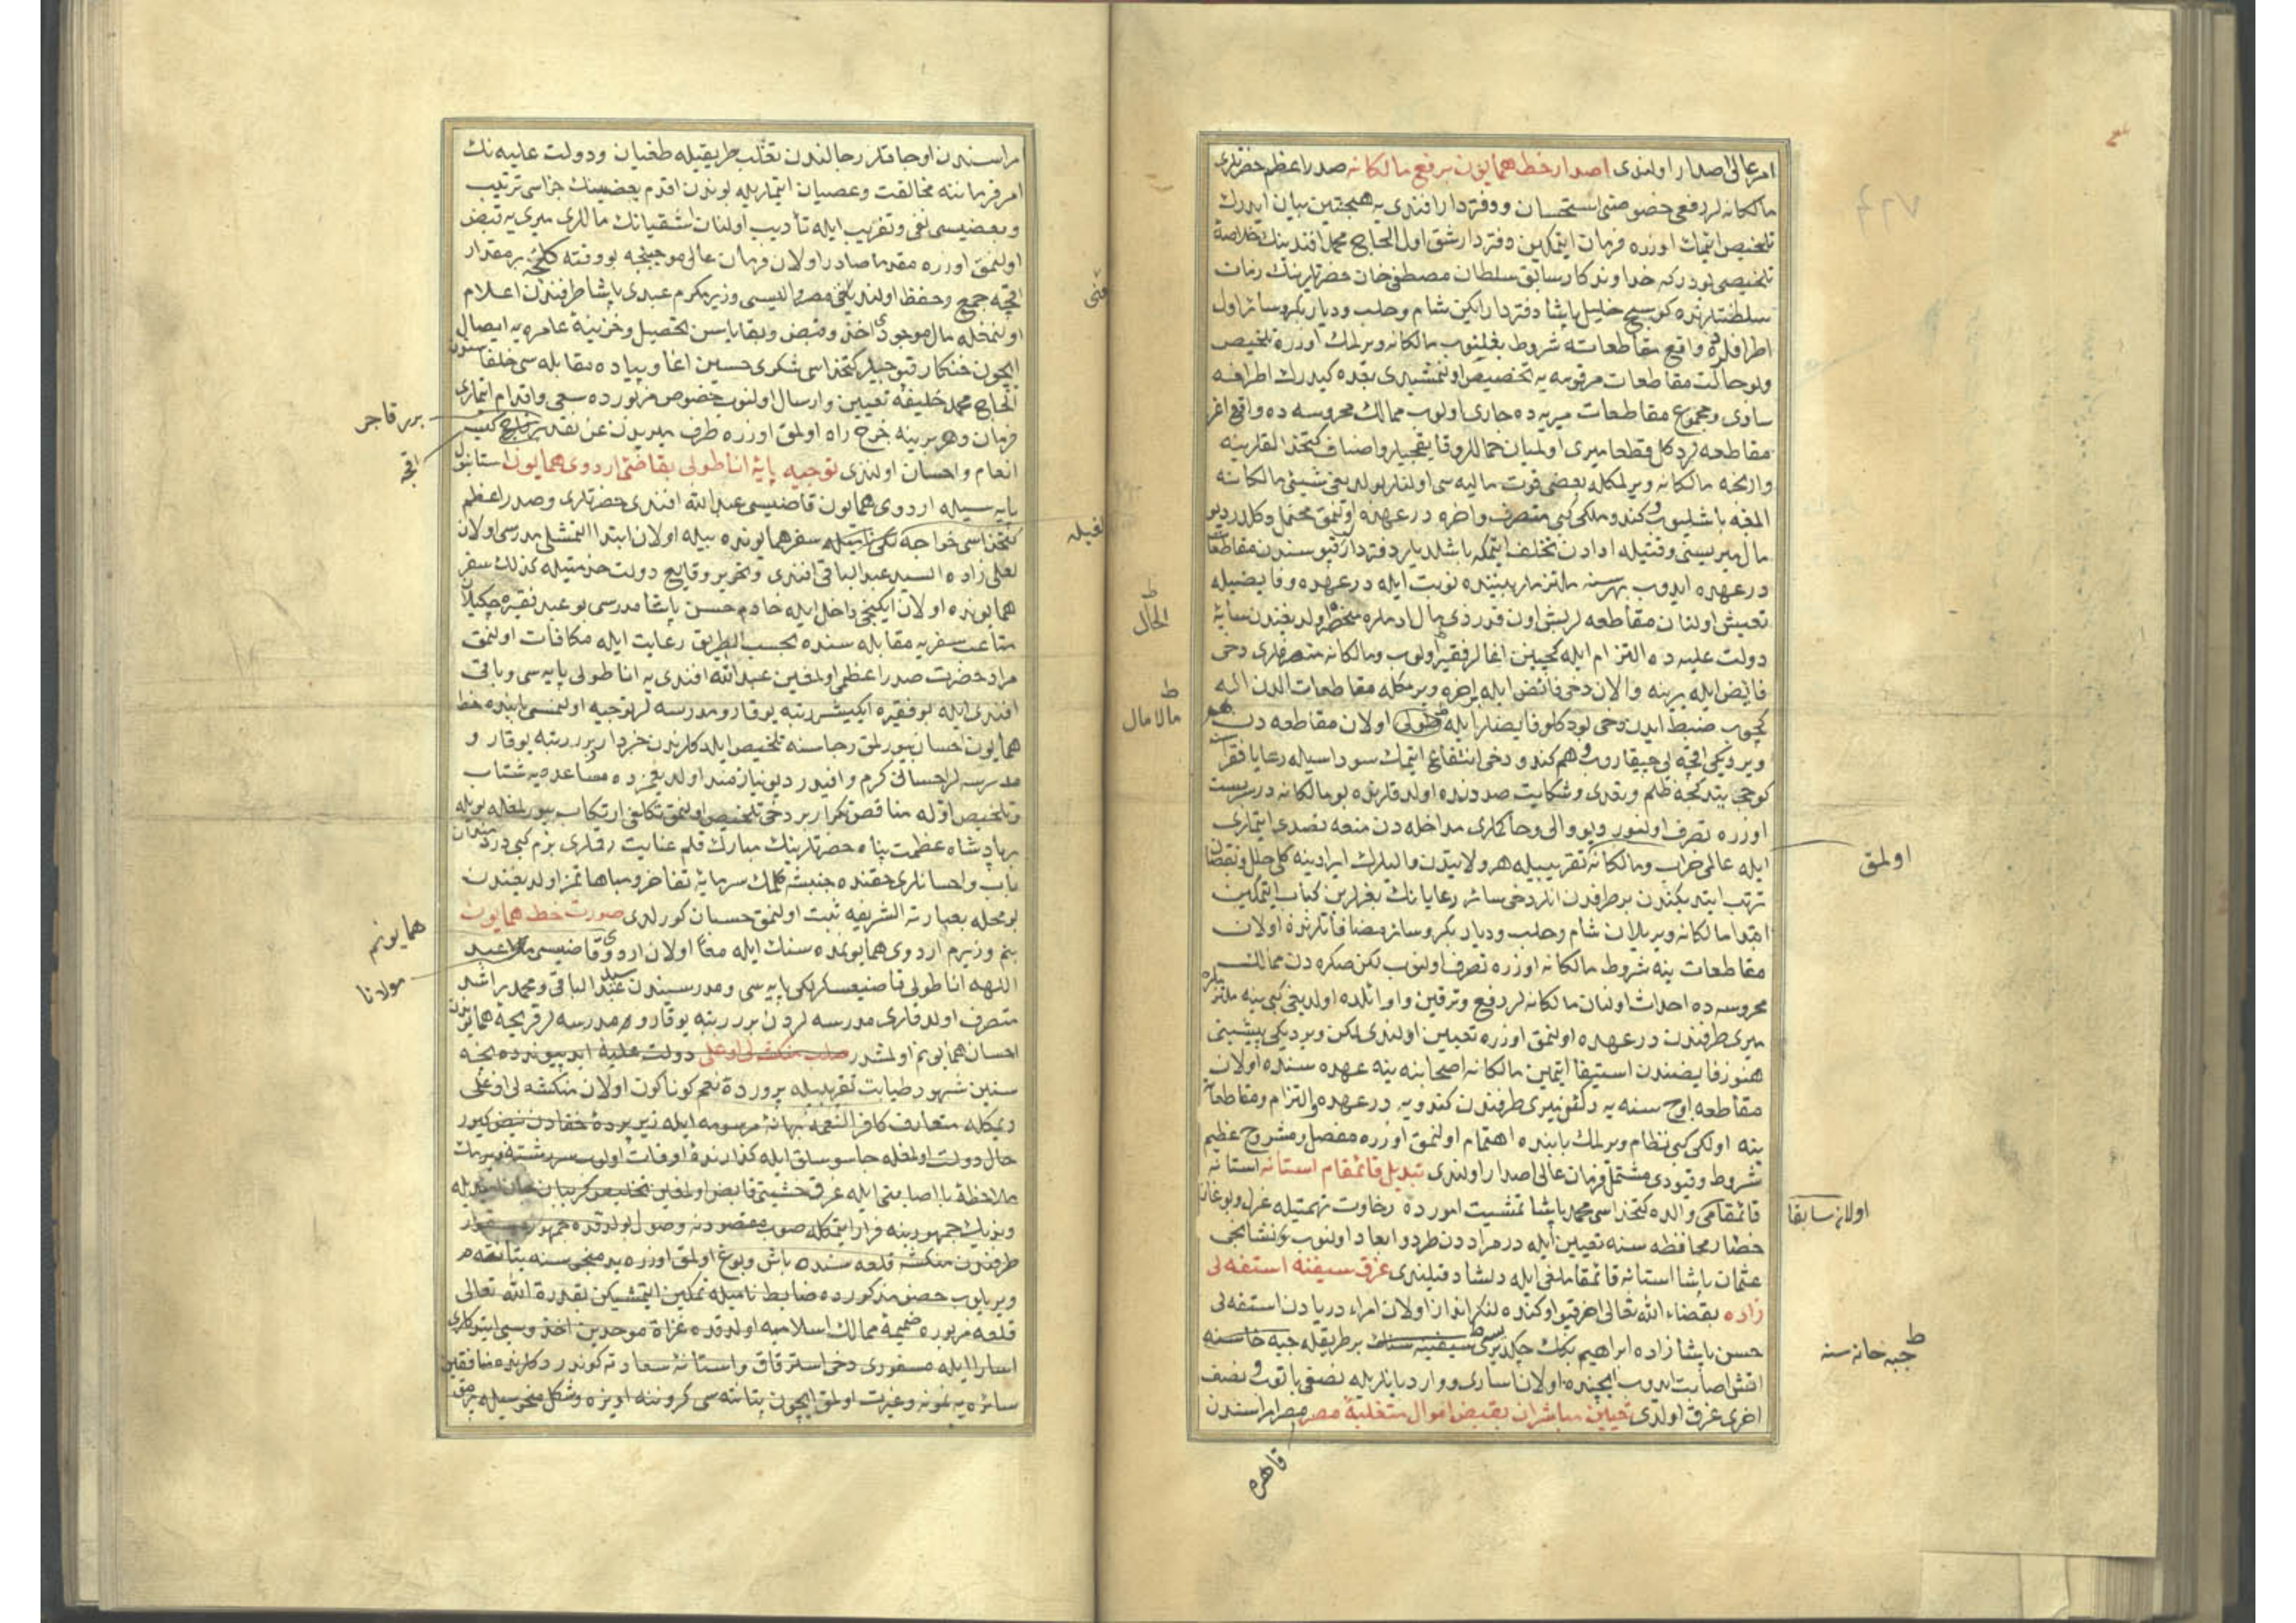 امر عالی اصدار اولندی اصدار خط همایون برفع مالکانه صدر اعظم حضرتلری
مالکانه لر رفعی خصوصنی استحسان و دفتردار افندی یه هیجتین بیان ایدرك
تلخیص ایتمك اوزره فرمان ایتمکین دفتردار شق اول الحاج محمد افندینك خلاصهٔ
تلخیصی بودرکه خداوندکار سابق سلطان مصطفی خان حضرتلرینك زمان
سلطنتلرنده کوسج خلیل پاشا دفتردار ایکن شام و حلب و دیاربکر و سائر اول
اطرافلرده واقع مقاطعاته شروط بغلنوب مالکانه ویرلمك اوزره تلخیص
وبو حالت مقاطعات مرقومه یه تخصیص اولنمشیدی بعده کیدرك اطرافه
ساری و مجموع مقاطعات میریه ده جاری اولوب ممالك محروسه ده واقع اغر
مقاطعه لردکل قطعا میری اولمیان حماللر و قایقجیلر و اصناف کتخدالقلرینه
وارنجه مالکانه ویرلمکله بعضی قوت مالیه سی اولنلر بولدیغی شیئی مالکانه
المغه باشلیوب و کندو ملکی کبی متصرف و اخره در عهده اولنمق محتمل دکلدر دیو
مال میریسنی وقتیله ادادن تخلف ایتمکه باشلدیلر دفتردار قپوسندن مقاطعات
در عهده ایدوب بهر سنه ملتزملر بیننده نوبت ایله در عهده و فایضیله
تعیش اولنان مقاطعه لر بش اون قدر ذی مال ادملره منحصر اولدیغندن سایهٔ
دولت علیه ده التزام ایله کچینن اغالر فقیر اولوب و مالکانه متصرفلری دخی
فائض ایله برینه و الان دخی فائض ایله اخره ویرمکله مقاطعات الدن اله
کچوب ضبط ایدن دخی بودکلو فایضلر ایله طولی اولان مقاطعه دن هم
ویردیکی اقچه یی چیقاروب و هم کندو دخی انتفاع ایتمك سوداسیله رعایا فقراسنه
کوجی یتدکجه ظلم و تعدی و شکایت صددنده اولدقلرنده بو مالکانه در سربست
اوزره تصرف اولنور دیو والی و حاکملری مداخله دن منعه تصدی ایتملری
ایله عالمی خراب و مالکانه تقریبیله هر ولایتدن والیلرك ایرادینه کلی خلل و نقصان
ترتب ایتدیکندن بر طرفدن انلر دخی سائر رعایانك بغرلرین کباب ایتمکین
ابتدا مالکانه ویریلان شام و حلب و دیاربکر و سائر مضافاتلرنده اولان
مقاطعات ینه شروط مالکانه اوزره تصرف اولنوب لکن صکره دن ممالك
محروسه ده احداث اولنان مالکانه لر رفع و ترقین و اوائلده اولدیغی کبی ینه ملتزملره
میری طرفندن در عهده اولنمق اوزره تعیین اولندی لکن ویردیکی پیشینی
هنوز فایضندن استیفا ایتمین مالکانه اصحابنه ینه عهده سنده اولان
مقاطعه اوچ سنه یه دکین میری طرفندن کندویه در عهده و التزام و مقاطعات
ینه اولکی کبی نظام ویرلمك بابنده اهتمام اولنمق اوزره مفصل و مشروح عظیم
شروط و قیودی مشتمل فرمان عالی اصدار اولندی تبدیل قائمقام استانه استانه
قائمقامی والده کتخداسی محمد پاشا تمشیت امورده رخاوت تهمتیله عزل و بوغاز
حصار محافظه سنه تعیین ایله در مراددن طرد و ابعاد اولنوب نشانجی
عثمان پاشا استانه قائمقاملغی ایله دلشاد قیلندی غرق سفینه استفه لی
زاده بقضاء الله تعالی اخر قپو اوکنده لنکر انداز اولان امراء دریادن استفه لی
حسن پاشا زاده ابراهیم بك چکدیریسی سفینه سنك بر طریقله جبه خانه سنه
اتش اصابت ایدوب ایچنده اولان اساری و وارد یانلریله نصفی یانوب و نصف
اخری غرق اولدی تعیین مباشران بقبض اموال متغلبهٔ مصر مصر امراسندن
اولمق
اولان سابقا
ط جبه خانه سنه
قاهره
ط الحال
ط مالامال
امراسندن اوجاقلر رجالندن تغلب طریقیله طغیان و دولت علیه نك
امر فرماننه مخالفت و عصیان ایتملریله بوندن اقدم بعضیسنك جزاسی ترتیب
و بعضیسی نفی و تغریب ایله تأدیب اولنان اشقیانك ماللری میری یه قبض
اولنمق اوزره مقدما صادر اولان فرمان عالی موجبنجه بو وقته کلنجه بر مقدار
اقچه جمع و حفظ اولندیغی مصر والیسی وزیر مکرم عبدی پاشا طرفندن اعلام
اولنمغله مال موجودی اخذ و قبض و بقایاسین تحصیل و خزینهٔ عامره یه ایصال
ایچون خنکار قپوجیلر کتخداسی شکری حسین اغا و پیاده مقابله سی خلفاسندن
الحاج محمد خلیفه تعیین و ارسال اولنوب خصوص مزبورده سعی و اقدام ایتملری
فرمان و هر برینه خرج راه اولمق اوزره طرف میریدن عن نقد برقاج کیسه
انعام و احسان اولندی توجیه پایهٔ اناطولی بقاضئ اردوی همایون استانبول
پایه سیله اردوی همایون قاضیسی عبدالله افندی حضرتلری و صدر اعظم
کتخداسی خواجه لکی نامیله سفر همایونده بیله اولان ابتدا التمشلی مدرسی اولان
لعلی زاده السید عبدالباقی افندی و تحریر وقایع دولت خدمتیله کذلك سفر
همایونده اولان ایکنجی داخل ایله خادم حسن پاشا مدرسی بو عبد فقیره چکیلان
متاعب سفریه مقابله سنده بحسب الطریق رعایت ایله مکافات اولنمق
مراد حضرت صدر اعظمی اولمغین عبدالله افندی یه اناطولی پایه سی و باقی
افندی ایله بو فقیره ایکیشر رتبه یوقارو مدرسه لر توجیه اولنمسی بابنده خط
همایون احسان بیورلمق رجاسنه تلخیص ایلدکلرندن خبردار برر رتبه یوقارو
مدرسه لر احسانی کرم و افیدر دیو نیازمند اولدیغمزده مساعده یه شتاب
و تلخیص اوله مناقض تکرار بر دخی تلخیص اولنمق تکلفی ارتکاب بیورلمغله بویله
بر پادشاه عظمت پناه حضرتلرینك مبارك قلم عنایت رقملری بزم کبی دردمندان
باب و احسانلری حقنده جنبشه کلمك سرمایهٔ تفاخر و مباهاتمز اولدیغندن
بو محله بعبارته الشریفه ثبت اولنمق حسبان کورلدی صورت خط همایون
بنم وزیرم اردوی همایونمده سنك ایله معا اولان اردوی قاضیسی عبد
اللهه اناطولی قاضیعسکرلکی پایه سی و مدرسیندن سید عبدالباقی و محمد راشد
متصرف اولدقلری مدرسه لردن برر رتبه یوقارو مدرسه لر قریحهٔ همایونمدن
احسان همایونم اولمشدر صلب منکشه لی اوغلی دولت علیهٔ ابد پیونده نیجه
سنین شهور طبابت تقریبیله پروردهٔ نعم کوناکون اولان منکشه لی اوغلی
دیمکله متعارف کافر النعمه بهانهٔ مرسومه ایله زیر پردهٔ خفادن
حال دولت اولمغله جاسوسلق ایله کذارندهٔ اوقات اولوب سررشتهٔ
ملاحظهٔ نااصابتی ایله عرق خشیتی قابض اولمغین تخلیص کریبان جان
ونديك جمهورینه فرار ایتمکله صوب مقصودنه وصول اولدقده جمهور
طرفندن منکشه قلعه سنده باش و بوغ اولمق اوزره
ویریلوب حصن مذکورده ضابط نامیله تمکین ایتمشیکن بقدرة الله تعالی
قلعه مزبوره ضمیمهٔ ممالك اسلامیه اولدقده غزاة موحدین اخذ و سبی ایتدکلری
اسارا ایله مسفوری دخی استرقاق و استانهٔ سعادته کوندردکلرنده منافقین
سائره یه نمونه و عبرت اولمق ایچون
برر قاجر
اقچه
همایونم
مولانا